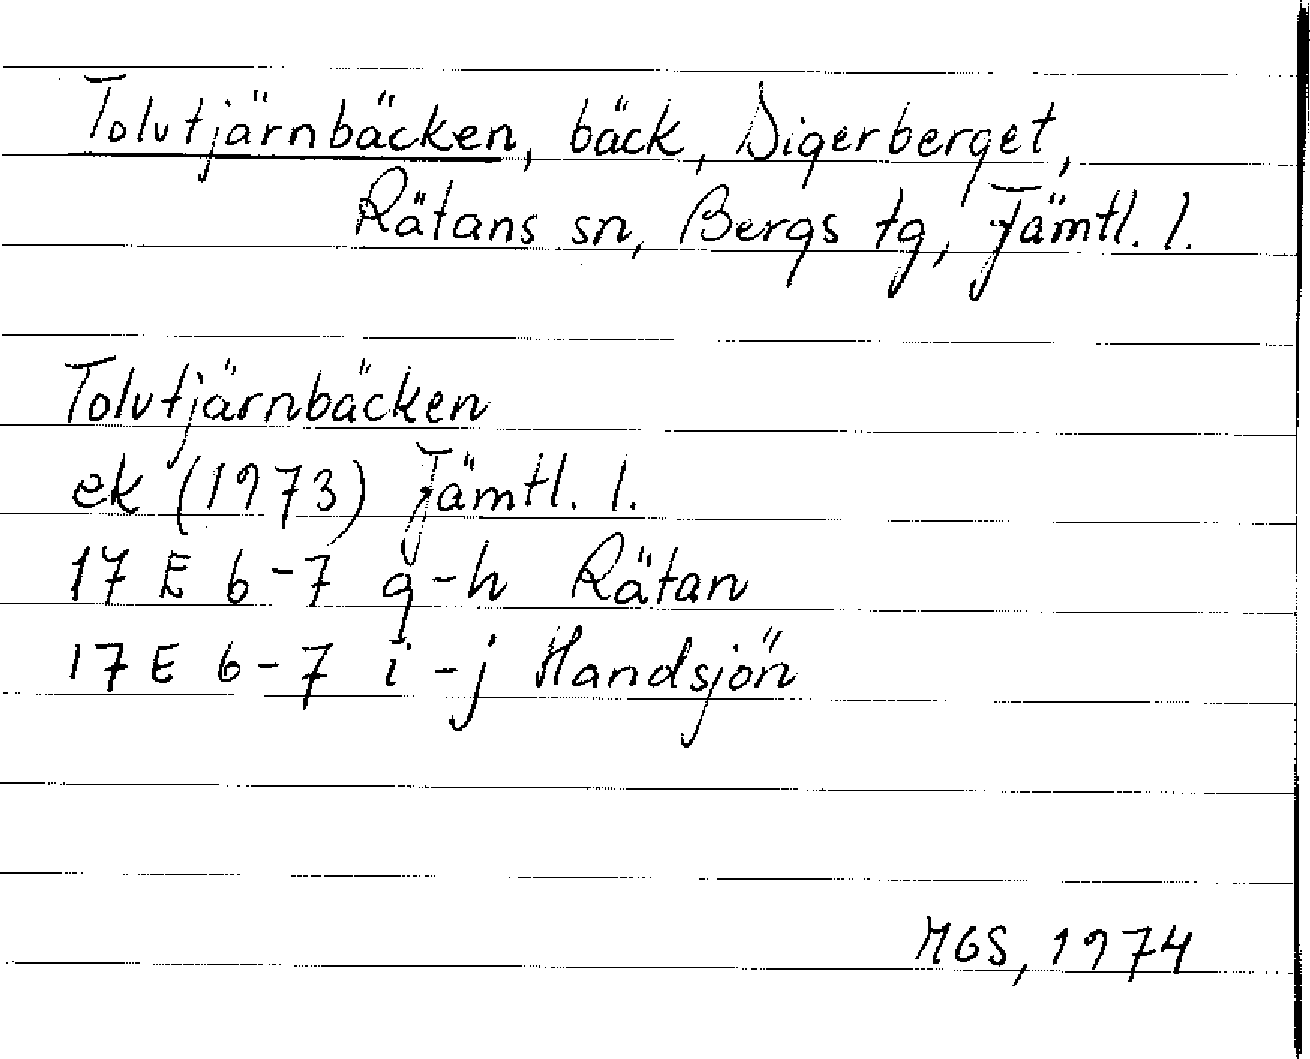 Tolvtjärnbäcken, bäck, Digerberget,
Rätans sn, Bergs tg, Jämtl. l.
Tolvtjärnbäcken
ek (1973) Jämtl. l.
17 E 6-7 g-h Rätan
17 E 6-7 i-j Handsjön
MGS, 1974